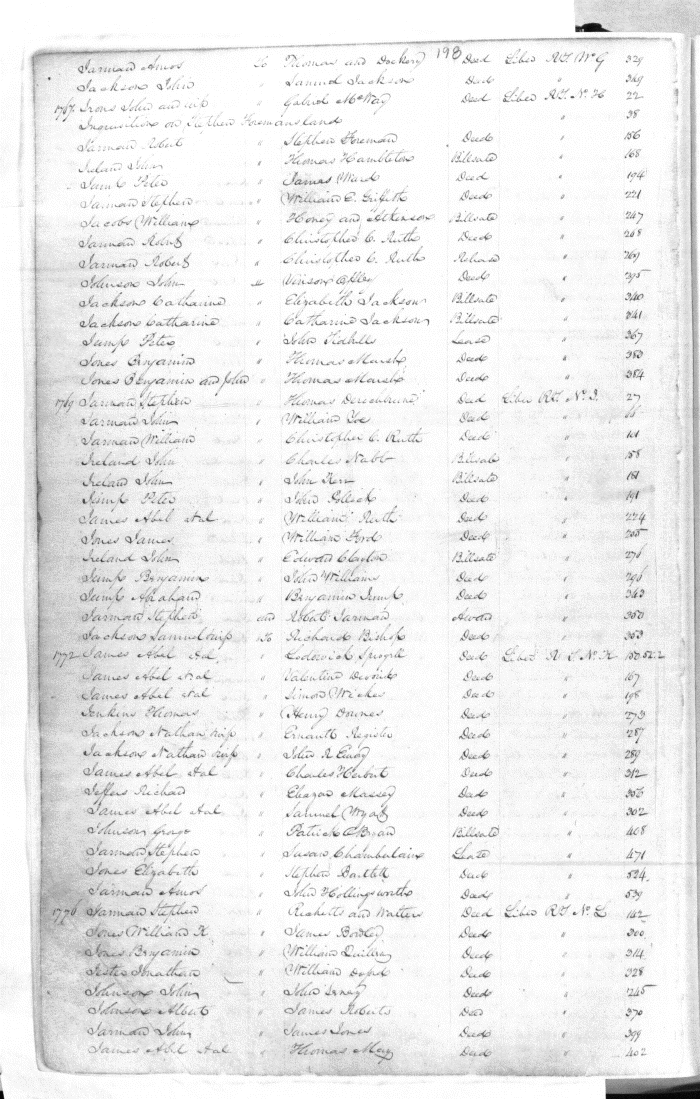 198
Jarman Amos to Thomas and Dockery Deed Liber R.T. No G 329
Jackson John " Samuel Jackson Deed " 349
1767 Irons John and wife " Gabriel McWay Deed Liber R.T. No. H 22
Inquisition on Stephen Foremans land " 38
Jarman Robert " Stephen Foreman Deed " 156
Ireland John " Thomas Hambleton Billsale " 168
Jump Peter " James Ward Deed " 194
Jarman Stephen " William C. Griffith Deed " 221
Jacobs William " Honey and Atkenson Billsale " 247
Jarman Robert " Christopher C. Ruth Deed " 268
Jarman Robert " Christopher C. Ruth Release " 269
Johnson John " Vinson Deed " 295
Jackson Catharine " Elizabeth Jackson Billsale " 340
Jackson Catharine " Catharine Jackson Billsale " 341
Jump Peter " John Tidhills Lease " 367
Jones Benjamin " Thomas Marsh Deed " 383
Jones Benjamin and John " Thomas Marsh Deed " 384
1769 Jarman Stephen " Thomas Deed Liber R.T. No. I. 27
Jarman John " William Deed " 66
Jarman William " Christopher C. Ruth Deed " 101
Ireland John " Charles Nabb Billsale " 158
Ireland John " John Kerr Billsale " 181
Jump Peter " John Pollock Deed " 191
James Abel &al " William Ruth Deed " 224
Jones James " William Ford Deed " 255
Ireland John " Edward Clayton Billsale " 276
Jump Benjamin " John Williams Deed " 296
Jump Abraham " Benjamin Jump Deed " 343
Jarman Stephen and Robert Jarman Award " 350
Jackson Samuel & wife to Richard Bishop Deed " 353
1772 James Abel &al " Lodowick Deed Liber R T. No. K 150
James Abel &al " Valentine Deed " 167
James Abel &al " Simon Wickes Deed " 198
Jenkins Thomas " Henry Downes Deed " 273
Jackson Nathan & wife " Register Deed " 287
Jackson Nathan & wife " John R Emory Deed " 289
James Abel &al " Charles Deed " 312
Jeffers Richard " Eleazor Massey Deed " 356
James Abel &al " Samuel Wyatt Deed " 362
Johnson George " Patrick O Bryan Billsale " 408
Jarman Stephen " Susan Chamberlain Lease " 471
Jones Elizabeth " Stephen Bartlett Deed " 524
Jarman Amos " John Hollingsworth Deed " 539
1776 Jarman Stephen " Ricketts and Walters Deed Liber R.T. No. L 142
Jones William K " James Bordley Deed " 300
Jones Benjamin " William Quillen Deed " 314
Jester Jonathan " William Deed " 328
Johnson John " John Deed " 345
Johnson Albert " James Roberts Deed " 370
Jarman John " James Jones Deed " 399
James Abel &al " Thomas May Deed " 402